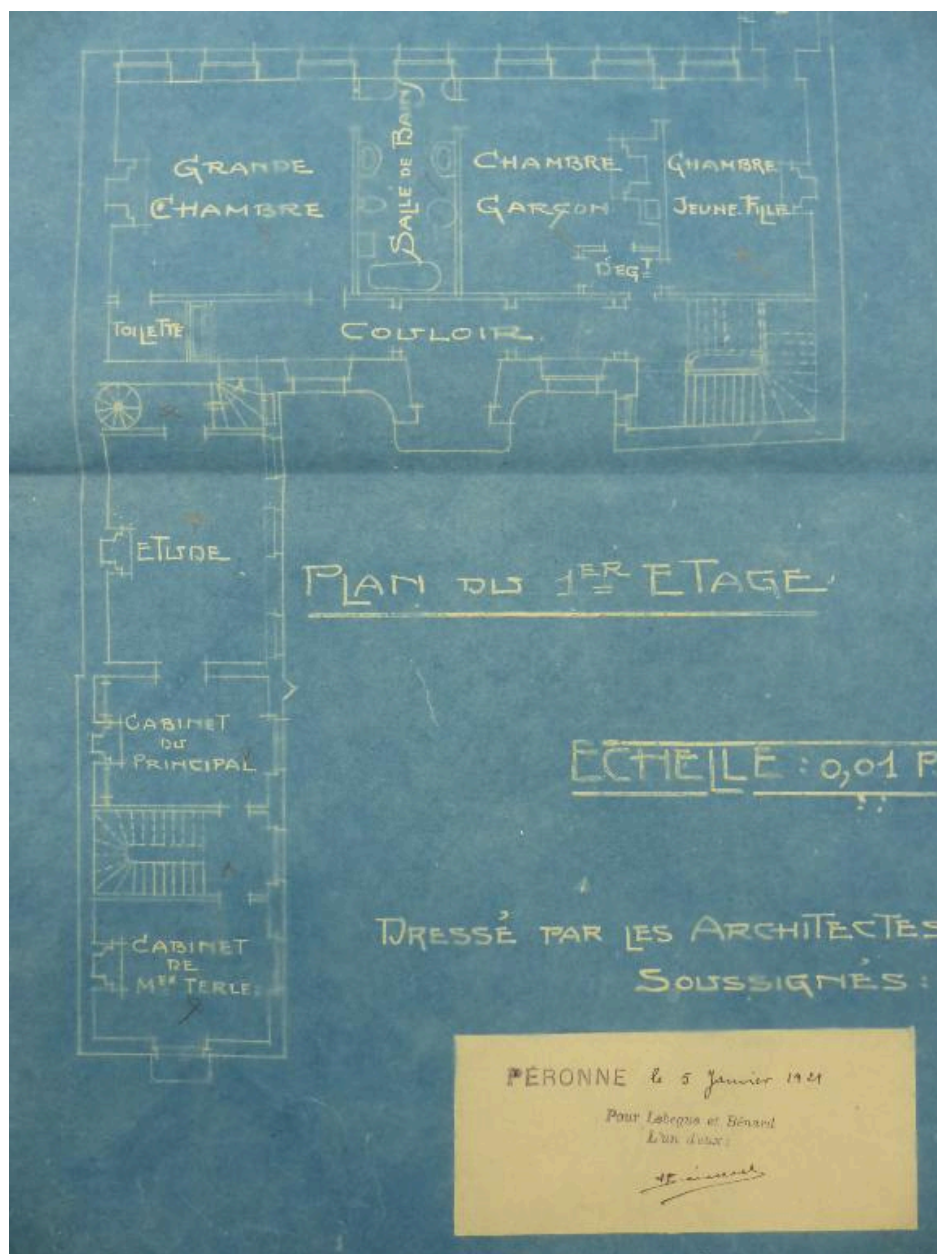 GRANDE
CHAMBRE
SALLE DE BAINS
CHAMBRE
GARÇON
CHAMBRE
JEUNE FILLE
DÉGT
TOILETTE
COULOIR.
ETUDE
PLAN DU 1ER ETAGE
CABINET
DU
PRINCIPAL
ECHELLE : 0,01 P.
CABINET
DE
MER TERLE.
DRESSÉ PAR LES ARCHITECTES
SOUSSIGNÉS :
PÉRONNE le 5 Janvier 1921
Pour Lebegue et Bénard
L'un deux :